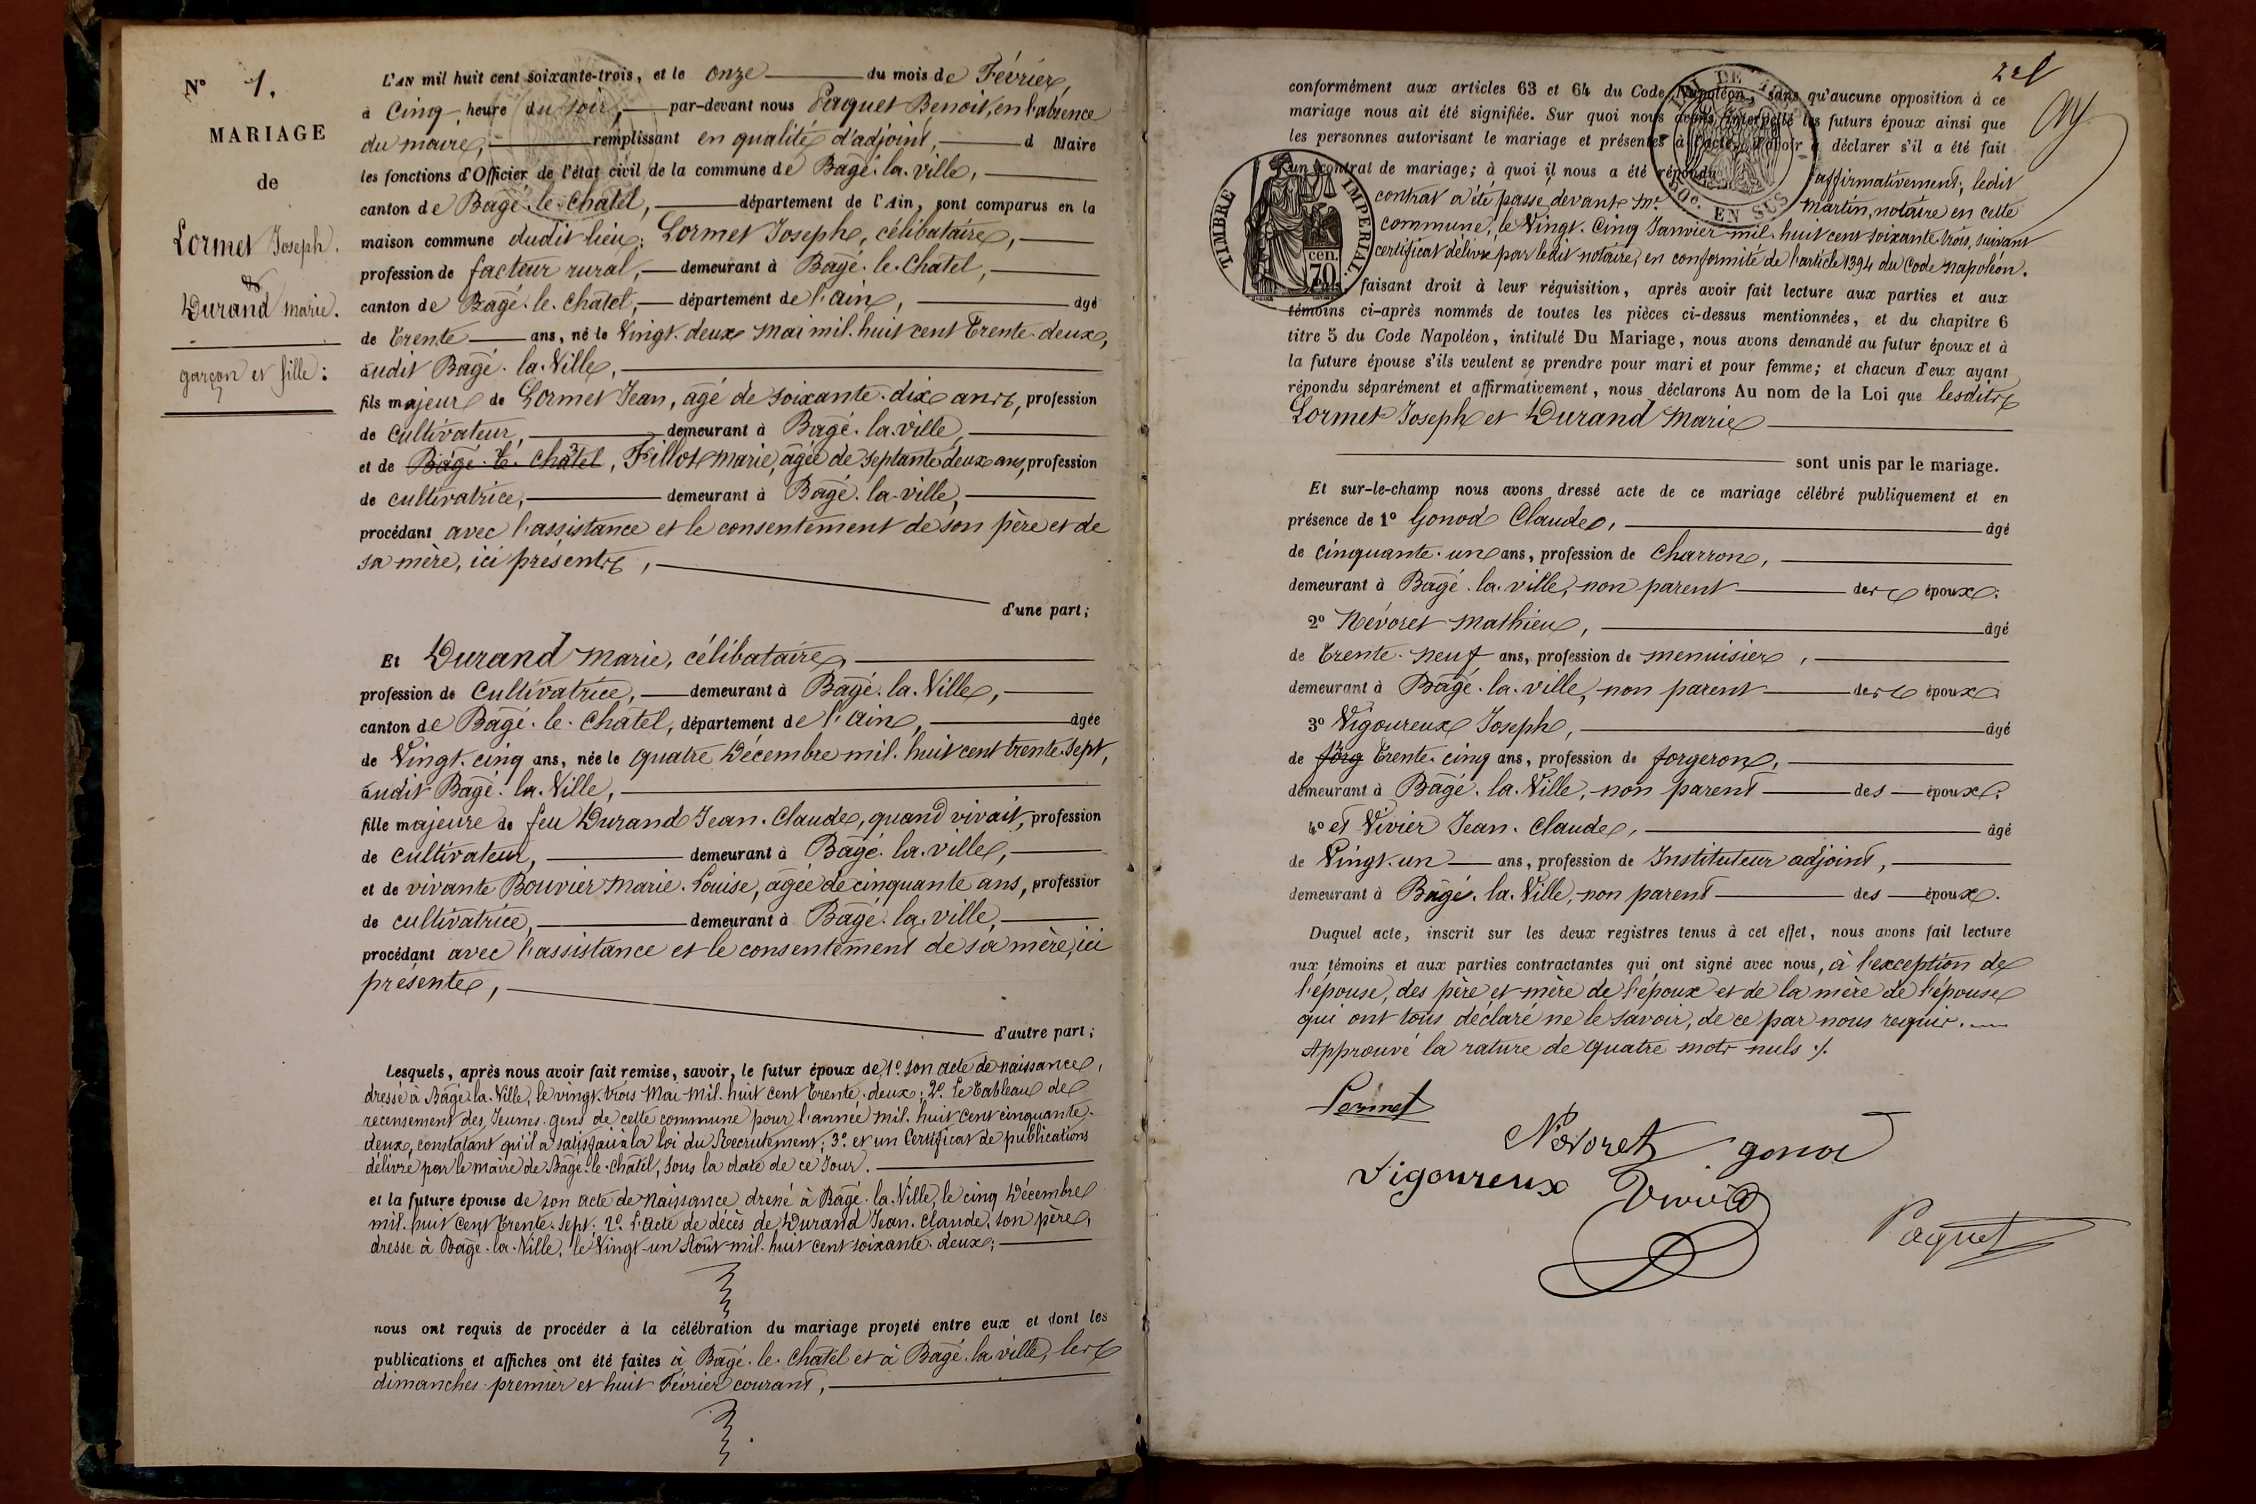 N° 1.
MARIAGE
de
Lormet Joseph.
&
Durand Marie.
garçon et fille:
L'AN mil huit cent soixante-trois, et le onze du mois de Février,
à Cinq heure du soir, par-devant nous Paquet Benoit, en l'absence
du maire, remplissant en qualité d'adjoint, d Maire
les fonctions d'Officier de l'état civil de la commune de Bagé-la-ville,
canton de Bagé-le-Châtel, département de l'Ain, sont comparus en la
maison commune dudit lieu; Lormet Joseph, célibataire,
profession de facteur rural, demeurant à Bagé-le-Châtel,
canton de Bagé-le-Châtel, département de l'ain, âgé
de Trente ans, né le Vingt-deux Mai mil-huit cent Trente-deux,
audit Bagé-la-Ville,
fils majeur de Lormet Jean, âgé de soixante-dix ans, profession
de cultivateur, demeurant à Bagé-la-ville,
et de Bâgé-le-Châtel, Fillot Marie, âgée de septante deux ans, profession
de cultivatrice, demeurant à Bagé-la-ville,
procédant avec l'assistance et le consentement de son père et de
sa mère, ici présents,
d'une part;
Et Durand Marie, célibataire,
profession de Cultivatrice, demeurant à Bagé-la-Ville,
canton de Bagé-le-Châtel, département de l'ain, âgée
de Vingt-cinq ans, née le quatre Décembre mil-huit cent trente-sept,
audit Bagé-la-Ville,
fille majeure de feu Durand Jean-Claude, quand vivait, profession
de cultivateur, demeurant à Bagé-la-ville,
et de vivante Bouvier Marie-Louise, âgée de cinquante ans, profession
de cultivatrice, demeurant à Bagé-la-ville,
procédant avec l'assistance et le consentement de sa mère, ici
présente,
d'autre part;
Lesquels, après nous avoir fait remise, savoir, le futur époux de 1° son acte de naissance,
dressé à Bâgé-la-Ville, le vingt-trois Mai mil-huit cent Trente-deux; 2° Le Tableau de
recensement des Jeunes-gens de cette commune pour l'année mil-huit cent cinquante-
deux, constatant qu'il a satisfait à la loi du Recrutement; 3° et un Certificat de publications
délivré par le maire de Bâgé-le-Châtel, sous la date de ce Jour.
et la future épouse de son acte de Naissance dressé à Bagé-la-Ville, le cinq Décembre
mil-huit cent Trente-sept; 2° l'Acte de décès de Durand Jean-Claude, son père,
dressé à Bagé-la-Ville, le Vingt-un Août mil-huit cent soixante-deux;
nous ont requis de procéder à la célébration du mariage projeté entre eux et dont les
publications et affiches ont été faites à Bagé-le-Châtel et à Bagé-la-ville, les
dimanches premier et huit Février courant,
conformément aux articles 63 et 64 du Code Napoléon, sans qu'aucune opposition à ce
mariage nous ait été signifiée. Sur quoi nous avons interpellé les futurs époux ainsi que
les personnes autorisant le mariage et présentes à l'acte, d'avoir à déclarer s'il a été fait
un contrat de mariage; à quoi il nous a été répondu affirmativement, ledit
contrat a été passé devant Mr. Martin, notaire en cette
commune, le Vingt-Cinq Janvier mil-huit cent soixante trois, suivant
certificat délivré par ledit notaire, en conformité de l'article 1394 du Code Napoléon.
TIMBRE IMPERIAL.
cen.
70
50c. EN SUS
faisant droit à leur réquisition, après avoir fait lecture aux parties et aux
témoins ci-après nommés de toutes les pièces ci-dessus mentionnées, et du chapitre 6
titre 5 du Code Napoléon, intitulé Du Mariage, nous avons demandé au futur époux et à
la future épouse s'ils veulent se prendre pour mari et pour femme; et chacun d'eux ayant
répondu séparément et affirmativement, nous déclarons Au nom de la Loi que lesdits
Lormet Joseph et Durand Marie
sont unis par le mariage.
Et sur-le-champ nous avons dressé acte de ce mariage célébré publiquement et en
présence de 1° Gonod Claude, âgé
de cinquante-un ans, profession de charron,
demeurant à Bagé-la-ville, non parent des époux.
2° Névoret Mathieu, âgé
de Trente-neuf ans, profession de menuisier,
demeurant à Bagé-la-ville, non parent des époux.
3° Vigoureux Joseph, âgé
de forg Trente-cinq ans, profession de forgeron,
demeurant à Bagé-la-Ville, non parent des époux.
4° et Vivier Jean-Claude, âgé
de Vingt-un ans, profession de Instituteur adjoint,
demeurant à Bagé-la-Ville, non parent des époux.
Duquel acte, inscrit sur les deux registres tenus à cet effet, nous avons fait lecture
aux témoins et aux parties contractantes qui ont signé avec nous, à l'exception de
l'épouse, des père et mère de l'époux et de la mère de l'épouse
qui ont tous déclaré ne le savoir, de ce par nous requis.
Approuvé la rature de quatre mots nuls ./.
Lormet
Nevoret gonod
Vigoureux Vivier
Paquet